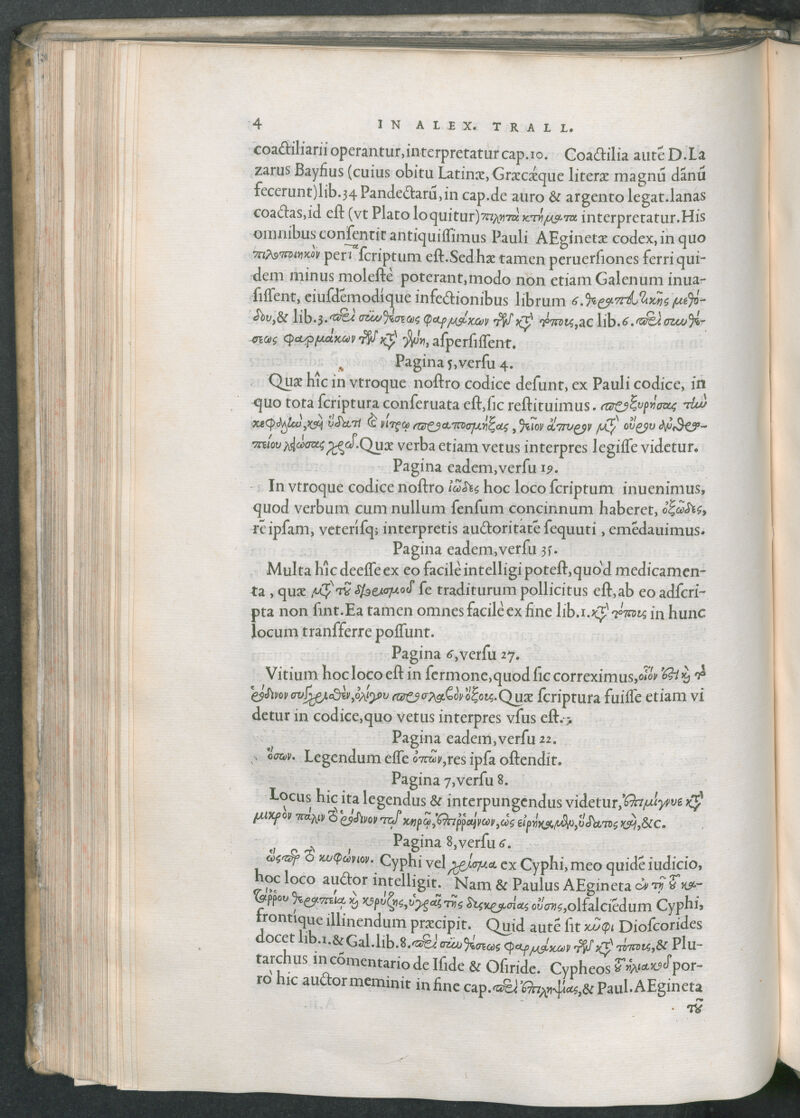 4 IN ALEX. TRALL.
coactiliarii operantur, interpretatur cap. 10. Coactilia autē D. La
zarus Bayfius (cuius obitu Latinæ, Græcæque literæ magnū dānū
fecerunt) lib. 34 Pandectarū, in cap. de auro & argento legat. lanas
coactas, id est (vt Plato loquitur) πιλητὰ κτήματα interpretatur. His
omnibus consentit antiquissimus Pauli AEginetæ codex, in quo
πιλοποιητικὸν per ı scriptum est. Sed hæ tamen peruersiones ferri qui-
dem minus molestè poterant, modo non etiam Galenum inua-
sissent, eiusdémodique infectionibus librum 6. θεραπευτικῆς μεθό-
δου, & lib. 3. περὶ συνθέσεως φαρμάκων τῶν κατὰ τόπους, ac lib. 6. περὶ συνθέ-
σεως φαρμάκων τῶν κατὰ γένη, aspersissent.
Pagina 5, versu 4.
Quæ hîc in vtroque nostro codice desunt, ex Pauli codice, in
quo tota scriptura conseruata est, sic restituimus. προξυρήσας τὴν
κεφαλὴν, καὶ ὕδατι καὶ νίτρῳ προαποσμήξας, θεῖον ἄπυρον μετὰ οὔρου
λειώσας χρῶ. Quæ verba etiam vetus interpres legisse videtur.
Pagina eadem, versu 19.
In vtroque codice nostro ἰῶδες hoc loco scriptum inuenimus,
quod verbum cum nullum sensum concinnum haberet, ὀξῶδες,
rē ipsam, veterisq; interpretis auctoritatē sequuti, emēdauimus.
Pagina eadem, versu 35.
Multa hîc deesse ex eo facilè intelligi potest, quòd medicamen-
ta, quæ μετὰ τοῦ se traditurum pollicitus est, ab eo adscri-
pta non sint. Ea tamen omnes facilè ex fine lib. 1. κατὰ τόπους in hunc
locum transferre possunt.
Pagina 6, versu 27.
Vitium hoc loco est in sermone, quod sic correximus, οἷόν ἐστι καὶ τὸ
ῥόδινον συγχρισθὲν, ὀλίγου προσλαβὸν ὄξους. Quæ scriptura fuisse etiam vi
detur in codice, quo vetus interpres vsus est.
Pagina eadem, versu 22.
ὅσων. Legendum esse ὀπῶν, res ipsa ostendit.
Pagina 7, versu 8.
Locus hic ita legendus & interpungendus videtur, ἐπιμίγνυε κατὰ
μικρὸν πάλιν τὸ ῥόδινον τῷ κηρῷ, ἐπιρραίνων, ὡς εἴρηκα, μὲν, ὕδατος καὶ, &c.
Pagina 8, versu 6.
ὥσπερ τὸ κυφώνιον. Cyphi vel χρίσμα ex Cyphi, meo quidē iudicio,
hoc loco auctor intelligit. Nam & Paulus AEgineta ἐν τῇ τοῦ κα-
τάρρου θεραπείᾳ καὶ κορύζης, ὑγρᾶς τῆς δυσκρασίας οὔσης, olfaciēdum Cyphi,
frontique illinendum præcipit. Quid autē sit κῦφι Dioscorides
docet lib. 1. & Gal. lib. 8. περὶ συνθέσεως φαρμάκων τῶν κατὰ τόπους, & Plu-
tarchus in cōmentario de Iside & Osiride. Cypheos τοῦ ἡλιακοῦ por-
rò hic auctor meminit in fine cap. περὶ ἐπιληψίας, & Paul. AEgineta
τοῦ